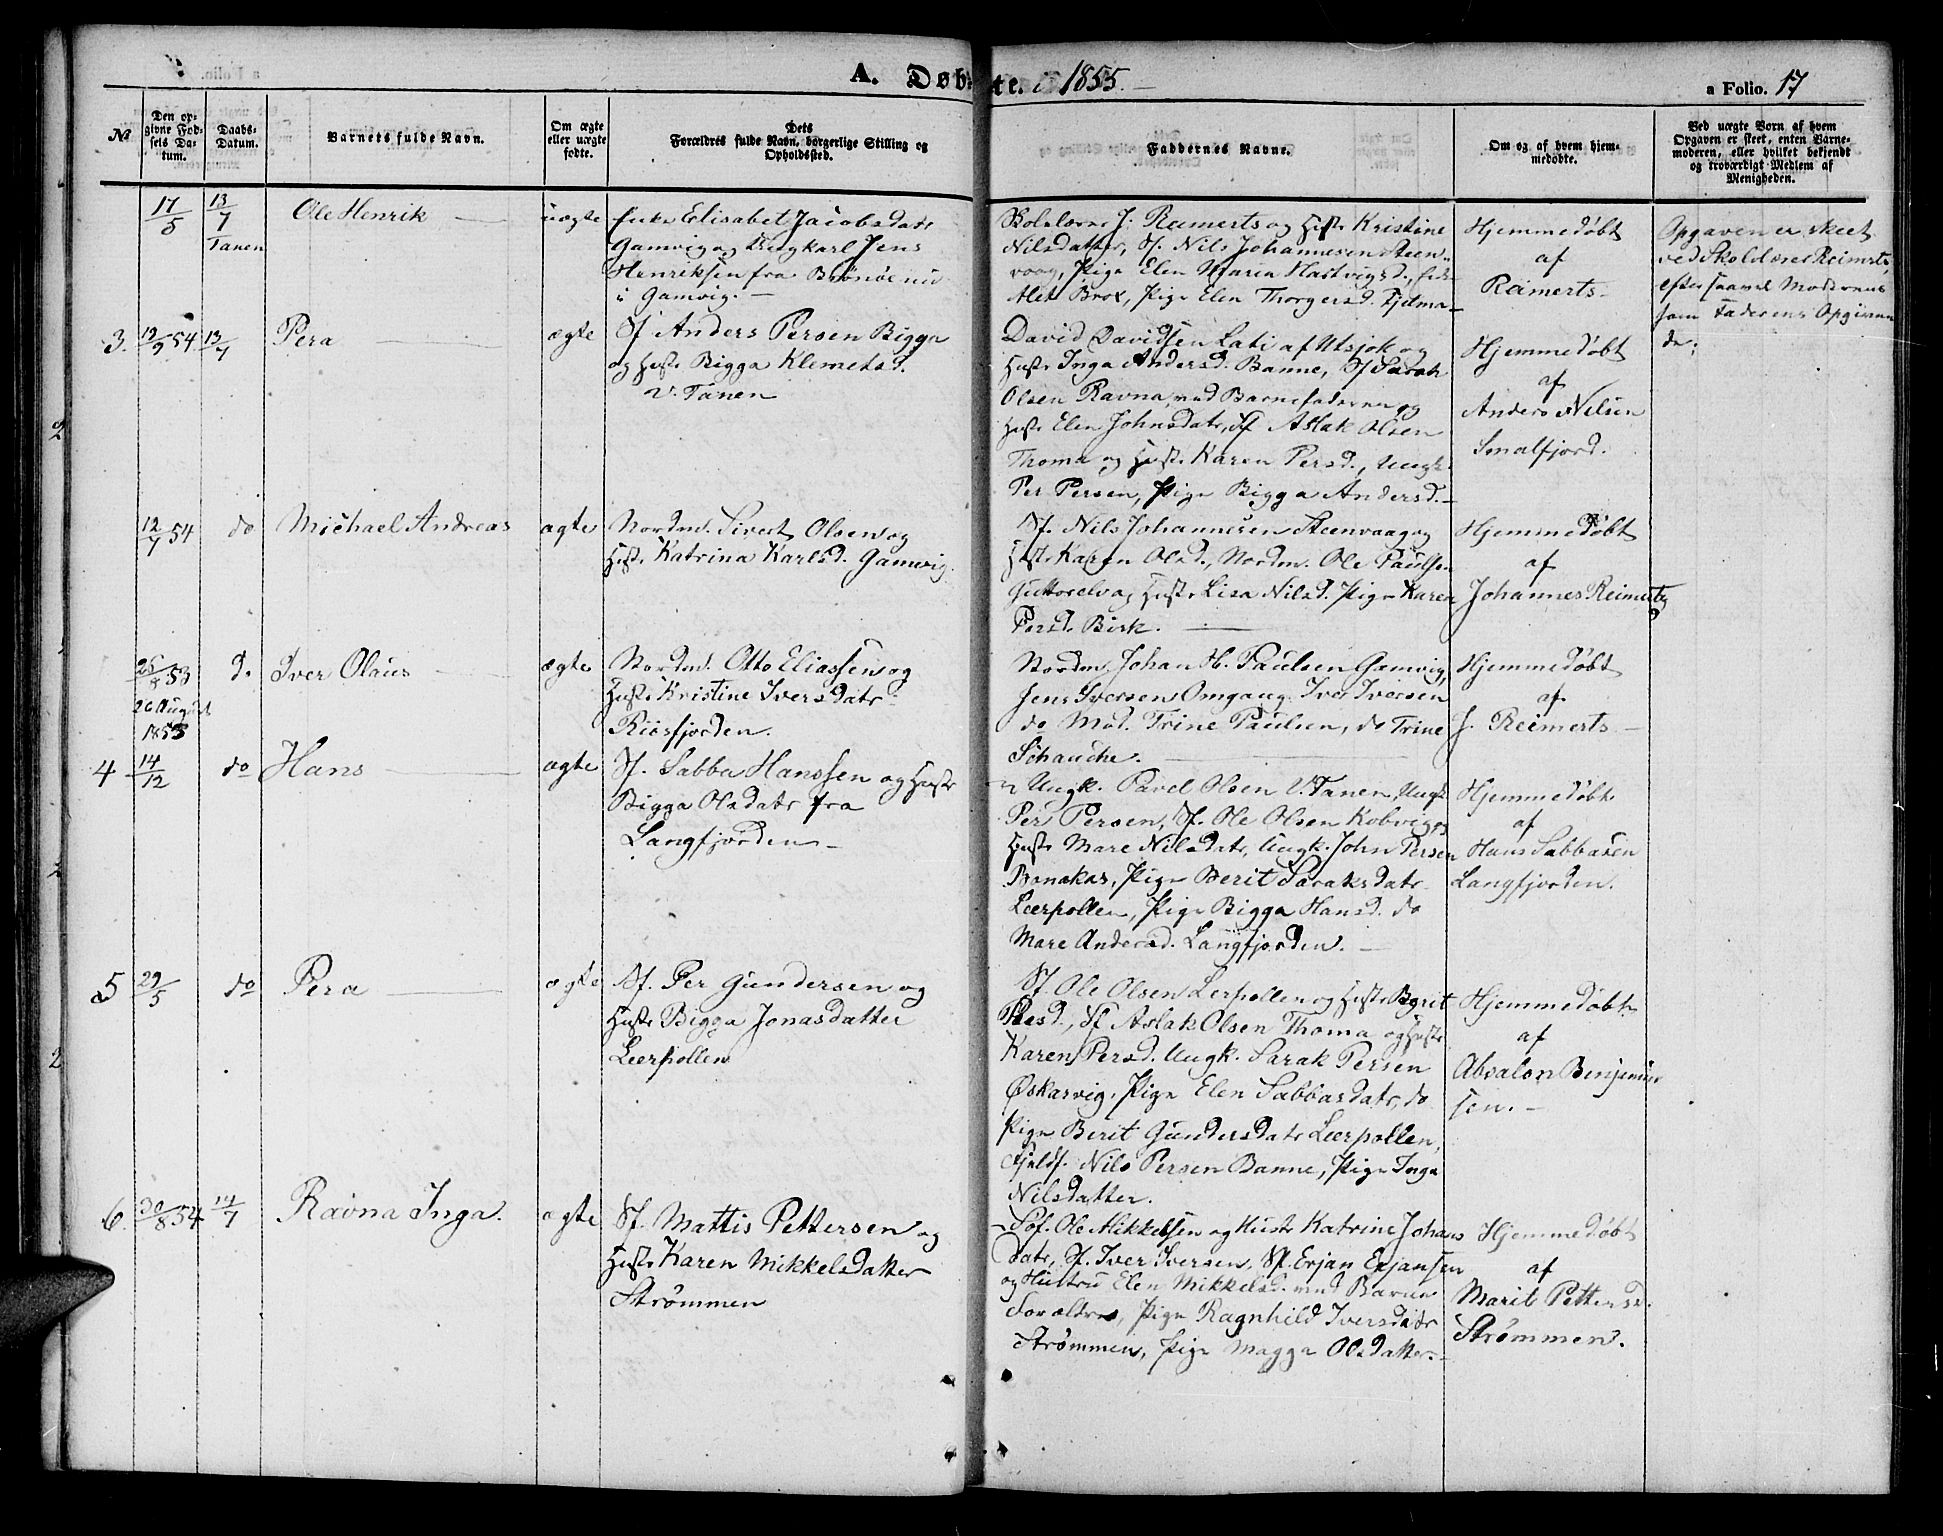 A. Døbte. 1855.
a Folio. 17
№
Den op-
givne Fød-
sels Da-
tum.
Daabs-
Datum.
Barnets fulde Navn.
Om ægte
eller uægte
fødte.
Dets
Forældres fulde Navn, borgerlige Stilling og
Opholdssted.
Faddernes Navne.
Om og af hvem hjem-
medøbte.
Ved uægte Børn af hvem
Opgaven er skeet, enten Barne-
moderen, eller hvilket bekjendt
og troværdigt Medlem af
Menigheden.
17/5
13/7
Tanen
Ole Henrik
uægte
Enke Elisabet Jacobsdatr
Gamvig og Ungkarl Jens
Henriksen fra Brønøe nu
i Gamvig.
Skolelærer J. Reimerts og Hustr Kristine
Nilsdatter, Sf. Nils Johannesen Steen-
vaag, Pige Elen Maria Hartvigsd., Enke
Alet Brox, Pige Elen Thorgersd. Fjelma
Hjemmedøbt
af
Reimerts
Opgaven er skeet
ved Skolelærer Reimerts,
efter saavel Moderens
som Faderens Opgivende
3. 12/9 54 13/7
Pera
ægte
Sf Anders Persen Bigga
og Hustr Bigga Klemetsd.
V. Tanen
David Davidsen Lati af Utsjok og
Hustr Inga Andersd. Banne, Sf Sarak
Olsen Ravna, med Barnefaderen og
Hustr Elen Johnsdatr, Sf Aslak Olsen
Thoma og Hustr Karen Persd., Ungk.
Per Persen, Pige Bigga Andersd.
Hjemmedøbt
af
Anders Nilsen
Smalfjord.
12/7 54
do
Michael Andreas
ægte
Nordm. Sivert Olsen og
Hustr Katrina Karlsd. Gamvig.
Sf. Nils Johannesen Steenvaag og
Hustr Karen Olsd., Nordm. Ole Paulsen
Guttorelv og Hustr Lisa Nilsd. Pige Karen
Persd. Birk.
Hjemmedøbt
af
Johannes Reimerts
25/8 53
26 August
1853
do
Iver Olaus
ægte
Nordm. Otto Eliassen og
Hustr Kristine Iversdatr
Riisfjorden.
Nordm. Johan H. Paulsen Gamvig,
Jens Iversen Omgang. Iver Iversen
do Md. Trine Paulsen, do Trine
Schanche.
Hjemmedøbt
af
J. Reimerts
4 14/12
do
Hans
ægte
Sf. Sabba Hanssen og Hustr
Bigga Olsdatr fra
Langfjorden
Ungk. Pavel Olsen V. Tanen, Ungk
Per Persen, Sf. Ole Olsen Kobvig og
Hustr Mare Nilsdatr, Ungk. John Persen
Bonakas, Pige Berit Saraksdatr
Leerpollen, Pige Bigga Hansd. do
Mare Andersd. Langfjorden.
Hjemmedøbt
af
Hans Sabbasen
Langfjorden.
5 29/5
do
Pera
ægte
Sf. Per Gundersen og
Hustr Bigga Jonasdatter
Leerpollen
Sf. Ole Olsen Lerpollen og Hustr Berit
Persd., Sf Aslak Olsen Thoma og Hustr
Karen Persd. Ungk. Sarak Persen
Øskarvig, Pige Elen Sabbasdatr, do
Pige Berit Gundersdatr Leerpollen,
Fjeldf. Nils Persen Banne, Pige Inga
Nilsdatter.
Hjemmedøbt
af
Absalon Benjamin-
sen.
6 30/8 54 14/7
Ravna Inga.
ægte
Sf. Mattis Pettersen og
Hustr Karen Mikkelsdatter
Strømmen
Søf. Ole Mikkelsen og Hustr Katrine Johans
datr, Sf. Iver Iversen, Sf. Erjan Erjansen
og Hustru Elen Mikkelsd. med Barnets
Forældre, Pige Ragnhild Iversdatr
Strømmen, Pige Magga Olsdatter.
Hjemmedøbt
af
Marit Pettersd.
Strømmen.